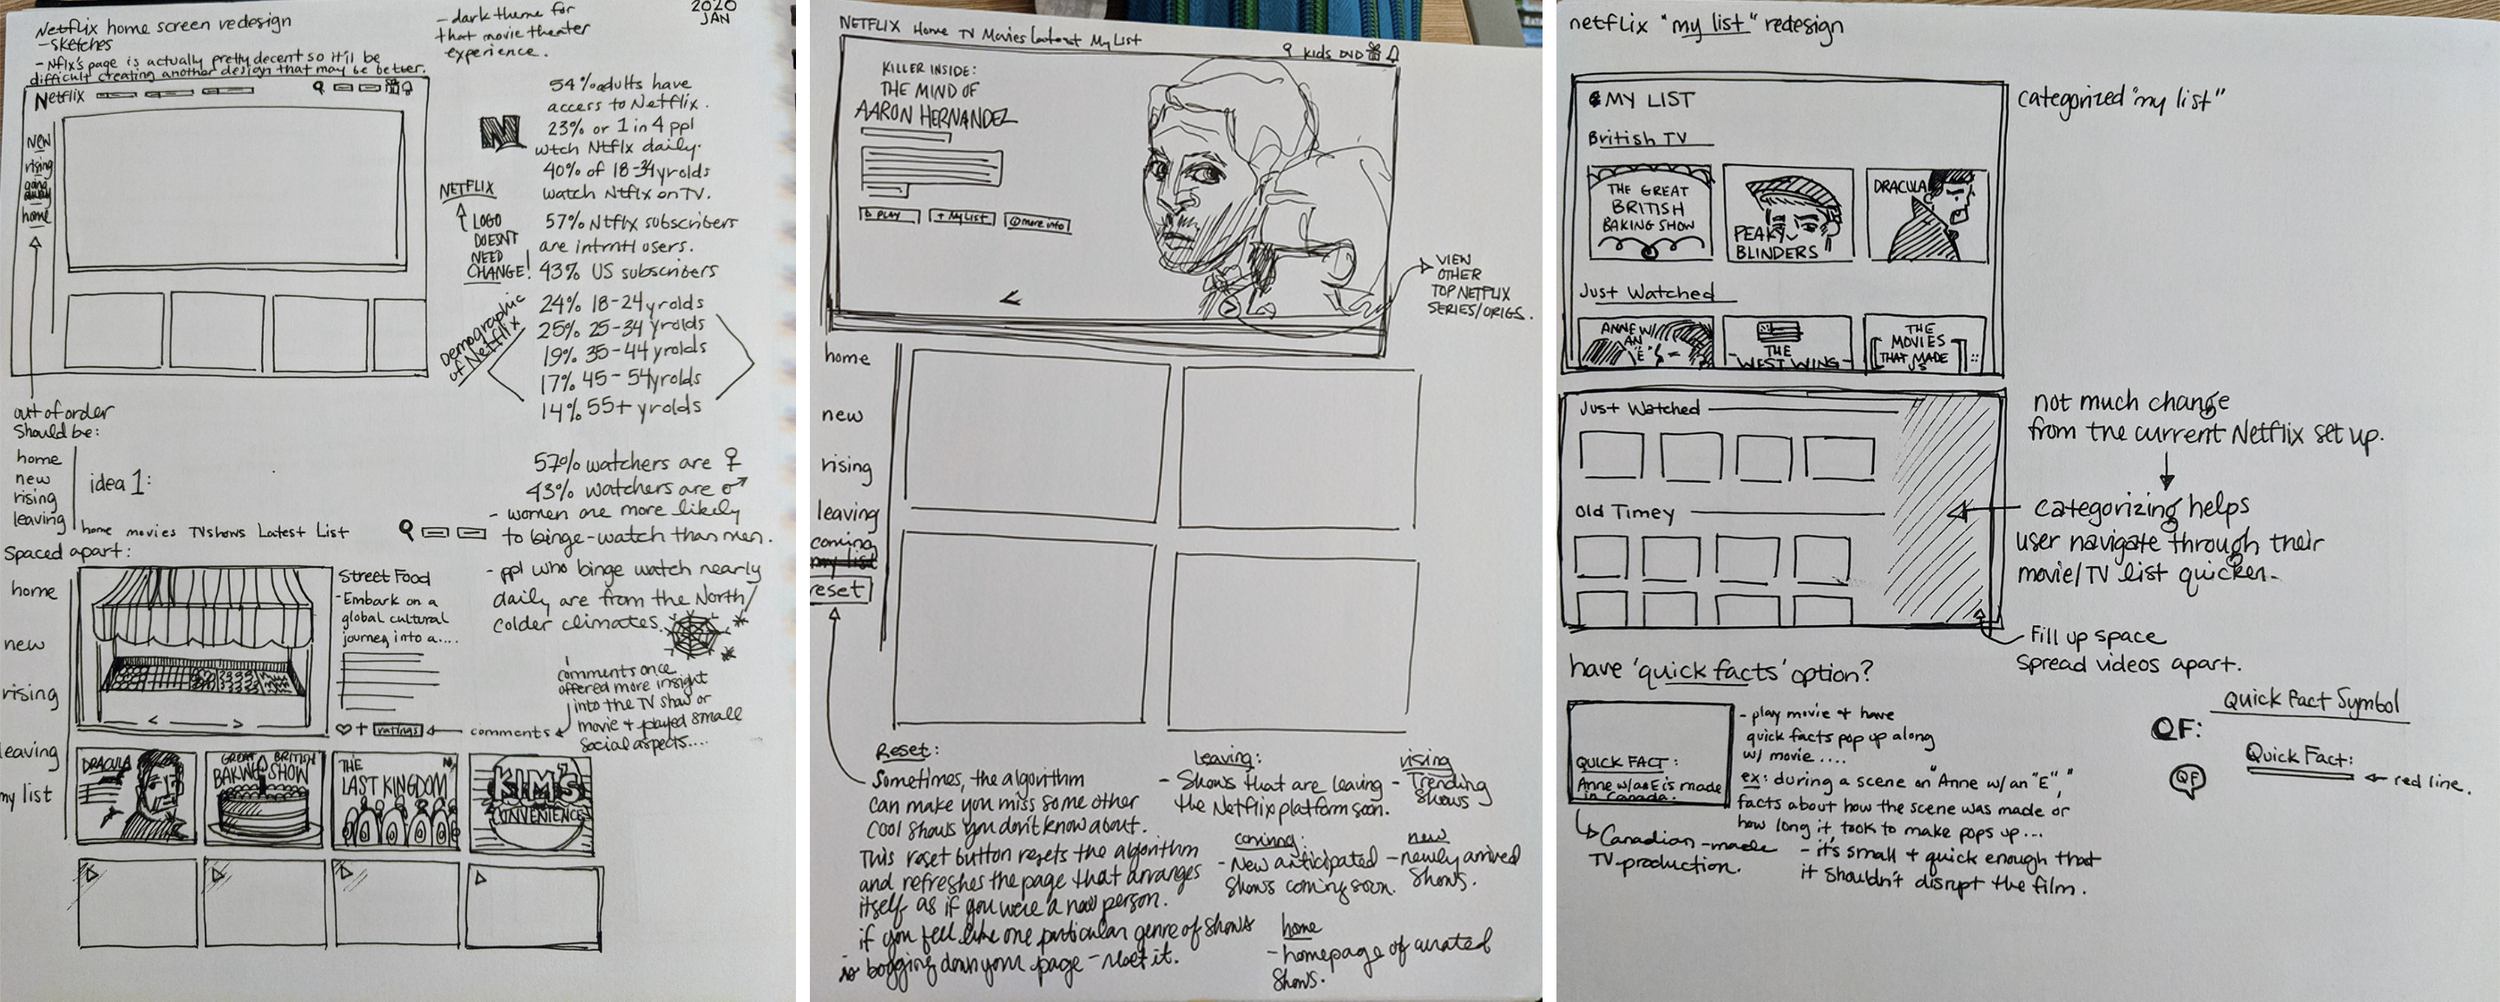 Netflix home screen redesign
- sketches
- Nflx's page is actually pretty decent so it'll be
difficult creating another design that may be better.
- dark theme for
that movie theater
experience.
2020
JAN
Netflix
new
rising
going
away
home
54% adults have
access to Netflix.
23% or 1 in 4 ppl
wtch Ntflx daily.
40% of 18-34 yrolds
watch Ntflx on TV.
57% Ntflx subscribers
are intrntl users.
43% US subscribers
N
NETFLIX
LOGO
DOESNT
NEED
CHANGE!
Demographic
of Netflix
24% 18-24 yrolds
25% 25-34 yrolds
19% 35-44 yrolds
17% 45-54 yrolds
14% 55+ yrolds
out of order
Should be:
home
new
rising
leaving
idea 1:
57% watchers are ♀
43% watchers are ♂
- women are more likely
to binge-watch than men.
- ppl who binge watch nearly
daily are from the North/
colder climates.
home movies TVshows Latest List
Spaced apart:
home
new
rising
leaving
my list
Street Food
- Embark on a
global cultural
journey into a....
< >
♡ + ratings ← comments
comments once
offered more insight
into the TV show or
movie + played small
social aspects....
DRACULA
GREAT BRITISH
BAKING SHOW
THE
LAST KINGDOM
N
KIM'S
CONVENIENCE
NETFLIX Home TV Movies Latest My List
kids DVD
KILLER INSIDE:
THE MIND OF
AARON HERNANDEZ
PLAY
+ My List
more info
<
>
VIEW
OTHER
TOP NETFLIX
SERIES/ORIGS.
home
new
rising
leaving
coming
my list
reset
Reset:
Sometimes, the algorithm
can make you miss some other
cool shows you don't know about.
This reset button resets the algorithm
and refreshes the page that arranges
itself as if you were a new person.
if you feel like one particular genre of shows
is bogging down your page - reset it.
leaving:
- Shows that are leaving
the Netflix platform soon.
rising
- Trending
shows
coming:
- New anticipated
shows coming soon.
new
- newly arrived
shows.
home
- homepage of curated
shows.
netflix "my list" redesign
MY LIST
British TV
THE GREAT
BRITISH
BAKING SHOW
PEAKY
BLINDERS
DRACULA
Just Watched
ANNE W/
AN
"E"
THE
WEST WING
THE
MOVIES
THAT MADE
US
categorized "my list"
Just Watched
Old Timey
not much change
from the current Netflix set up.
categorizing helps
user navigate through their
movie/TV list quicker.
Fill up space
Spread videos apart.
have 'quick facts' option?
QUICK FACT:
Anne w/ an E is made
in Canada.
Canadian-made
TV production.
- play movie + have
quick facts pop up along
w/ movie....
ex: during a scene on "Anne w/ an "E","
facts about how the scene was made or
how long it took to make pops up...
- it's small + quick enough that
it shouldn't disrupt the film.
Quick Fact Symbol
QF:
QF
Quick Fact:
red line.